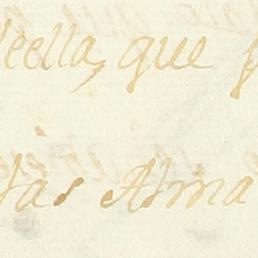 deella, que p
das Alma